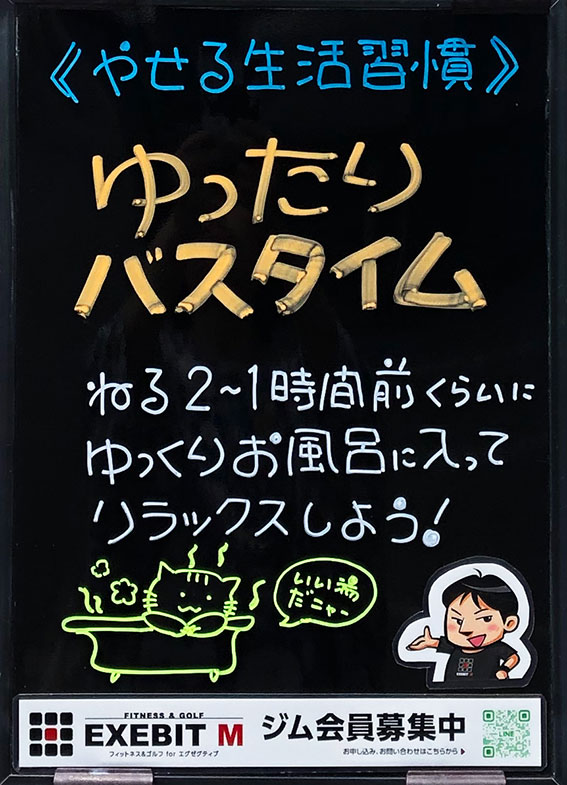 《やせる生活習慣》
ゆったり
バスタイム
ねる2~1時間前くらいに
ゆっくりお風呂に入って
リラックスしよう!
いい湯
だニャー
EXEBIT M
FITNESS & GOLF
EXEBIT M
フィットネス&ゴルフ for エグゼグティブ
ジム会員募集中
お申し込み、お問い合わせはこちらから▶
LINE